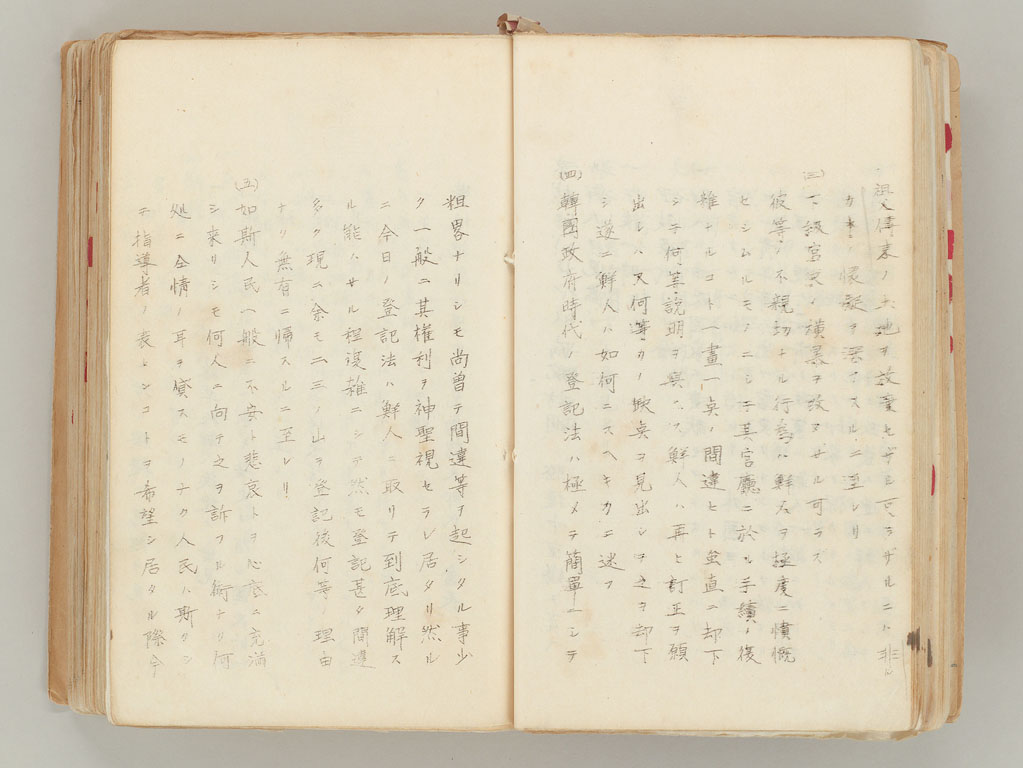 祖父伝来ノ土地ヲ放棄セザル可ラザルニハ非ル
カト懐疑ヲ深フスルニ至レリ
(三)下級官吏ノ横暴ヲ改メザル可ラズ
彼等ノ不親切ナル行為ハ鮮人ヲ極度ニ憤慨
セシムルモノニシテ其官庁ニ於ル手続ノ複
雑ナルコト一画一点ノ間違ヒト雖直ニ却下
シテ何等説明ヲ与ヘス鮮人ハ再ヒ訂正ヲ願
出レハ又何等カノ欠点ヲ見出シテ之ヲ却下
シ遂ニ鮮人ハ如何ニスヘキカニ迷フ
(四)韓国政府時代ノ登記法ハ極メテ簡単ニシテ
粗畧ナリシモ尚曽テ間違等ヲ起シタル事少
ク一般ニ其権利ヲ神聖視セラレ居タリ然ル
ニ今日ノ登記法ハ鮮人ニ取リテ到底理解ス
ル能ハサル程複雑ニシテ然モ登記甚タ間違
多ク現ニ余モ二三ノ山ヲ登記後何等ノ理由
ナリ無有ニ帰スルニ至レリ
(五)如斯人民一般ニ不安ト悲哀トヲ心底ニ充満
シ来リシモ何人ニ向テ之ヲ訴フル術ナリ何
処ニ全情ノ耳ヲ貸スモノナク人民ハ斯クシ
テ指導者ノ表レンコトヲ希望シ居タル際今